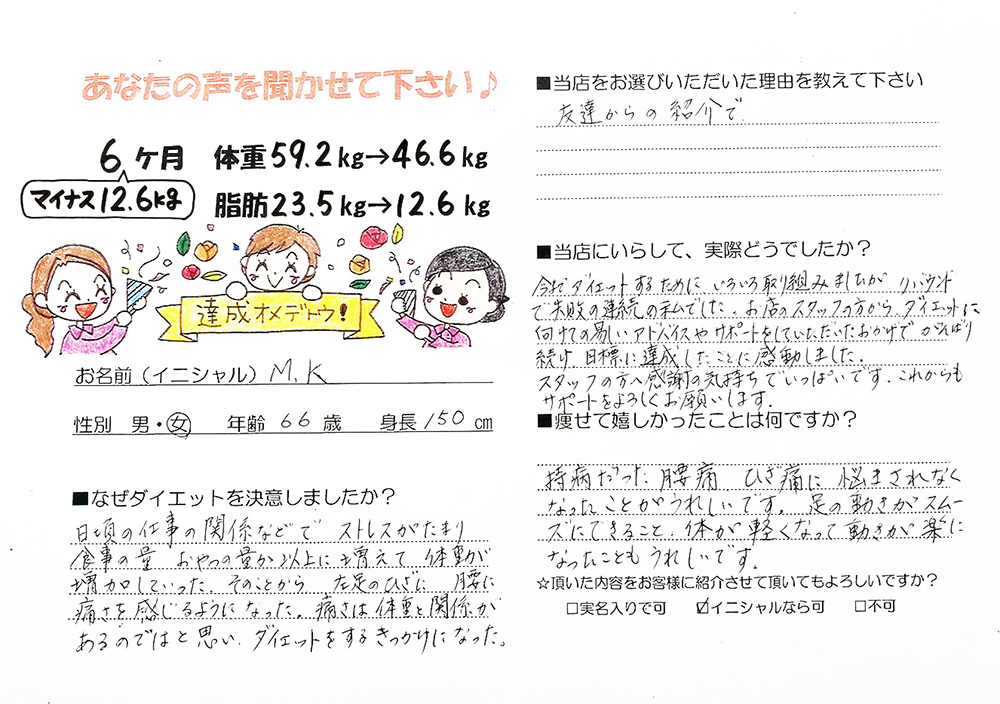 あなたの声を聞かせて下さい♪
6ヶ月 体重59.2kg→46.6kg
マイナス12.6kg 脂肪23.5kg→12.6kg
達成オメデトウ!
お名前(イニシャル) M.K
性別 男・女 年齢 66 歳 身長 150 cm
■なぜダイエットを決意しましたか?
日頃の仕事の関係などで ストレスがたまり
食事の量 おやつの量が以上に増えて、体重が
増加していった。そのことから 左足のひざに 腰に
痛さを感じるようになった。痛さは体重と関係が
あるのではと思い、ダイエットをするきっかけになった。
■当店をお選びいただいた理由を教えて下さい
友達からの紹介で
■当店にいらして、実際どうでしたか?
今までダイエットするために いろいろ取り組みましたが リバウンド
で失敗の連続の私でした。お店のスタッフの方から、ダイエットに
向けての易しいアドバイスやサポートをしていただいたおかげで がんばり
続け 目標に達成したことに感動しました。
スタッフの方へ感謝の気持ちでいっぱいです。これからも
サポートをよろしくお願いします。
■痩せて嬉しかったことは何ですか?
持病だった腰痛 ひざ痛に悩まされなく
なったことがうれしいです。足の動きがスムー
ズにできること、体が軽くなって動きが楽に
なったこともうれしいです。
☆頂いた内容をお客様に紹介させて頂いてもよろしいですか?
□実名入りで可 ☑イニシャルなら可 □不可